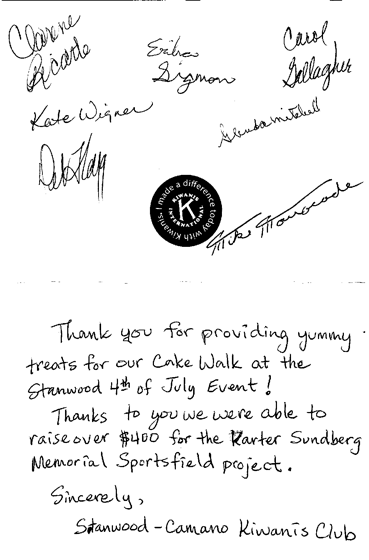 Clarene
Ricarde
Erika
Sigmon
Carol
Gallagher
Kate Wigner
Glenda Mitchell
Deb Flagg
I made a difference
today with Kiwanis.
KIWANIS
K
INTERNATIONAL
Mike
Thank you for providing yummy
treats for our Cake Walk at the
Stanwood 4th of July Event!
Thanks to you we were able to
raise over $400 for the Karter Sundberg
Memorial Sportsfield project.
Sincerely,
Stanwood-Camano Kiwanis Club